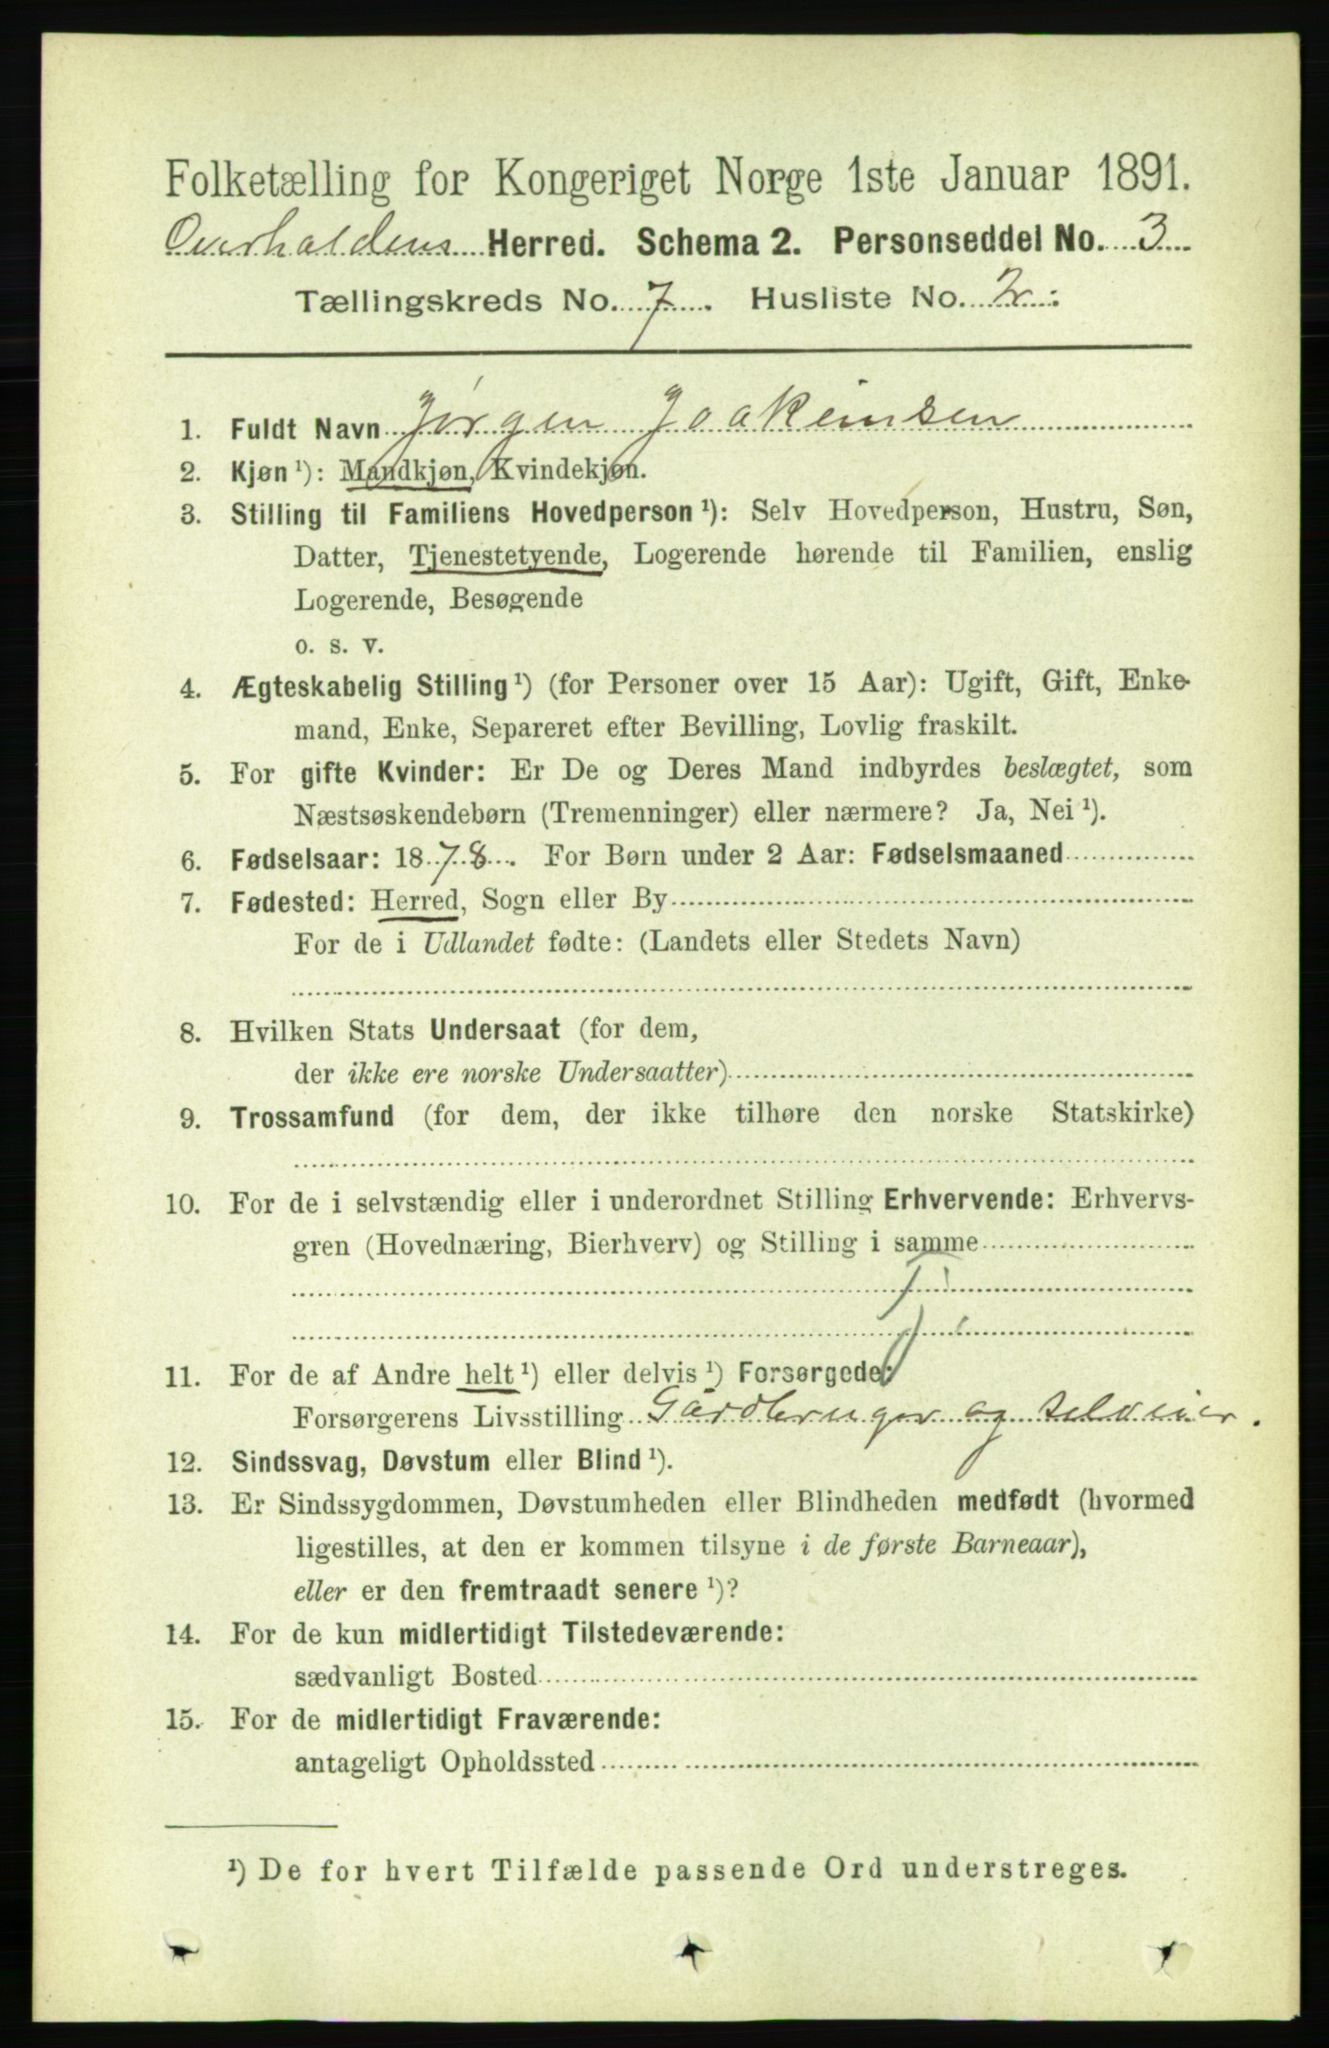 Folketælling for Kongeriget Norge 1ste Januar 1891.
Overhaldens Herred. Schema 2. Personseddel No. 3
Tællingskreds No. 7. Husliste No. 2.
1. Fuldt Navn Jørgen Joakimsen
2. Kjøn¹): Mandkjøn, Kvindekjøn.
3. Stilling til Familiens Hovedperson¹): Selv Hovedperson, Hustru, Søn,
Datter, Tjenestetyende, Logerende hørende til Familien, enslig
Logerende, Besøgende
o. s. v.
4. Ægteskabelig Stilling¹) (for Personer over 15 Aar): Ugift, Gift, Enke-
mand, Enke, Separeret efter Bevilling, Lovlig fraskilt.
5. For gifte Kvinder: Er De og Deres Mand indbyrdes beslægtet, som
Næstsøskendebørn (Tremenninger) eller nærmere? Ja, Nei¹).
6. Fødselsaar: 1878. For Børn under 2 Aar: Fødselsmaaned
7. Fødested: Herred, Sogn eller By
For de i Udlandet fødte: (Landets eller Stedets Navn)
8. Hvilken Stats Undersaat (for dem,
der ikke ere norske Undersaatter)
9. Trossamfund (for dem, der ikke tilhøre den norske Statskirke)
10. For de i selvstændig eller i underordnet Stilling Erhvervende: Erhvervs-
gren (Hovednæring, Bierhverv) og Stilling i samme
11. For de af Andre helt¹) eller delvis¹) Forsørgede:
Forsørgerens Livsstilling Gårdbruger og selveier.
12. Sindssvag, Døvstum eller Blind¹).
13. Er Sindssygdommen, Døvstumheden eller Blindheden medfødt (hvormed
ligestilles, at den er kommen tilsyne i de første Barneaar),
eller er den fremtraadt senere¹)?
14. For de kun midlertidigt Tilstedeværende:
sædvanligt Bosted
15. For de midlertidigt Fraværende:
antageligt Opholdssted
¹) De for hvert Tilfælde passende Ord understreges.